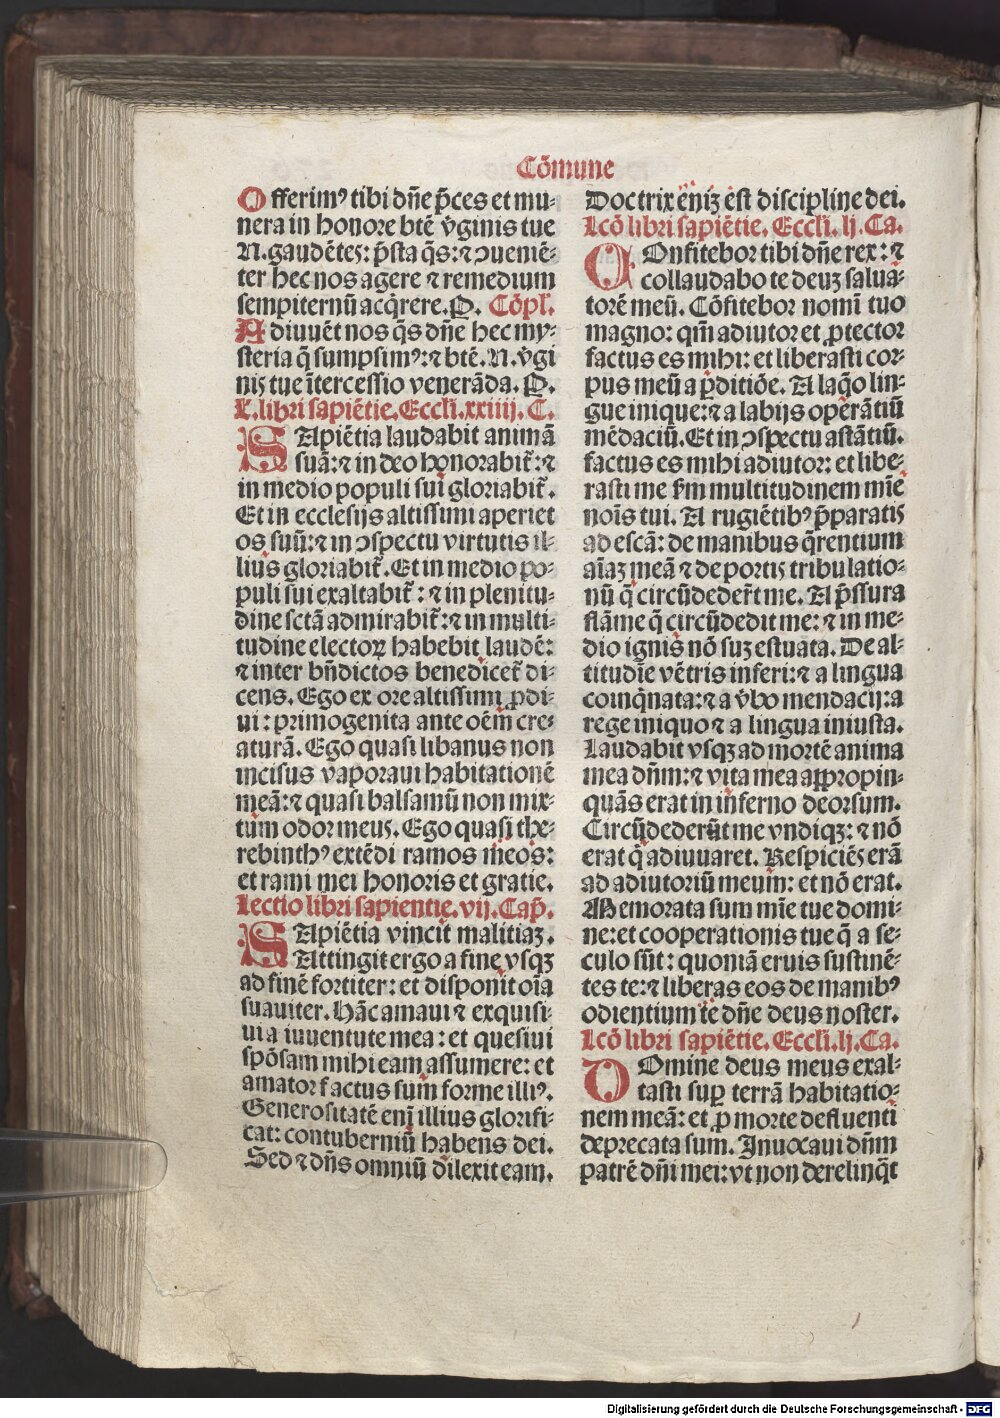 Cōmune
Offerimꝰ tibi dn̄e p̄ces et mu⸗
nera in honore btē v̄ginis tue
N. gaudētes: p̄sta q̄s: ⁊ ↄuenie⸗
ter hec nos agere ⁊ remedium
sempiternū acq̄rere. P. Cōpl̄.
Adiuuēt nos q̄s dn̄e hec my⸗
steria q̄ sumpsimꝰ: ⁊ btē. N. v̄gi
nis tue ītercessio venerāda. P.
L̄. libri sapiētie. Eccl̄i. xxiiij. C.
SApiētia laudabit animā
suā: ⁊ in deo honorabit̄: ⁊
in medio populi sui gloriabit̄.
Et in ecclesijs altissimi aperiet
os suū: ⁊ in ↄspectu virtutis il⸗
lius gloriabit̄. Et in medio po⸗
puli sui exaltabit̄: ⁊ in plenitu⸗
dine sctā admirabit̄: ⁊ in multi⸗
tudine electoꝝ habebit laudē:
⁊ inter bn̄dictos benedicet̄ di⸗
cens. Ego ex ore altissimi ꝓdi⸗
ui: primogenita ante oēm cre⸗
aturā. Ego quasi libanus non
incisus vaporaui habitationē
meā: ⁊ quasi balsamū non mix⸗
tum odor meus. Ego quasi the⸗
rebinthꝰ extēdi ramos meos:
et rami mei honoris et gratie.
Lectio libri sapientie. vij. Cap̄.
SApiētia vincit malitiaꝫ.
Attingit ergo a fine vsqꝫ
ad finē fortiter: et disponit oīa
suauiter. Hāc amaui ⁊ exquisi⸗
ui a iuuentute mea: et quesiui
spōsam mihi eam assumere: et
amator factus sum forme illiꝰ.
Generositatē eni illius glorifi⸗
cat: contuberniū habens dei.
Sed ⁊ dn̄s omniū dilexit eam.
Doctrix eniꝫ est discipline dei.
Lcō libri sapiētie. Eccl̄i. lj. Ca.
COnfitebor tibi dn̄e rex: ⁊
collaudabo te deuꝫ salua⸗
torē meū. Cōfitebor nomī tuo
magno: qm̄ adiutor et ꝓtector
factus es mihi: et liberasti cor⸗
pus meū a ꝑditiōe. A laq̄o lin⸗
gue inique: ⁊ a labijs operātiū
mēdaciū. Et in ↄspectu astātiū.
factus es mihi adiutor: et libe⸗
rasti me sm̄ multitudinem mīe
nois tui. A rugiētibꝰ p̄paratis
ad escā: de manibus q̄rentium
aīaꝫ meā ⁊ de portis tribulatio⸗
nū q̄ circūdeder̄t me. A p̄ssura
flāme q̄ circūdedit me: ⁊ in me⸗
dio ignis nō suꝫ estuata. De al⸗
titudīe vētris inferi: ⁊ a lingua
coinq̄nata: ⁊ a v̄bo mendacij: a
rege iniquo ⁊ a lingua iniusta.
Laudabit vsqꝫ ad mortē anima
mea dn̄m: ⁊ vita mea appropin⸗
quās erat in inferno deorsum.
Circūdederūt me vndiqꝫ: ⁊ nō
erat q̄ adiuuaret. Respiciēs erā
ad adiutoriū meum: et nō erat.
Memorata sum mīe tue domi⸗
ne: et cooperationis tue q̄ a se⸗
culo sūt: quoniā eruis sustinē⸗
tes te: ⁊ liberas eos de manibꝰ
odientium te dn̄e deus noster.
Lcō libri sapiētie. Eccl̄i. lj. Ca.
DOmine deus meus exal⸗
tasti suꝑ terrā habitatio⸗
nem meā: et ꝓ morte defluenti
deprecata sum. Inuocaui dn̄m
patrē dn̄i mei: vt non derelinq̄t
Digitalisierung gefördert durch die Deutsche Forschungsgemeinschaft - DFG